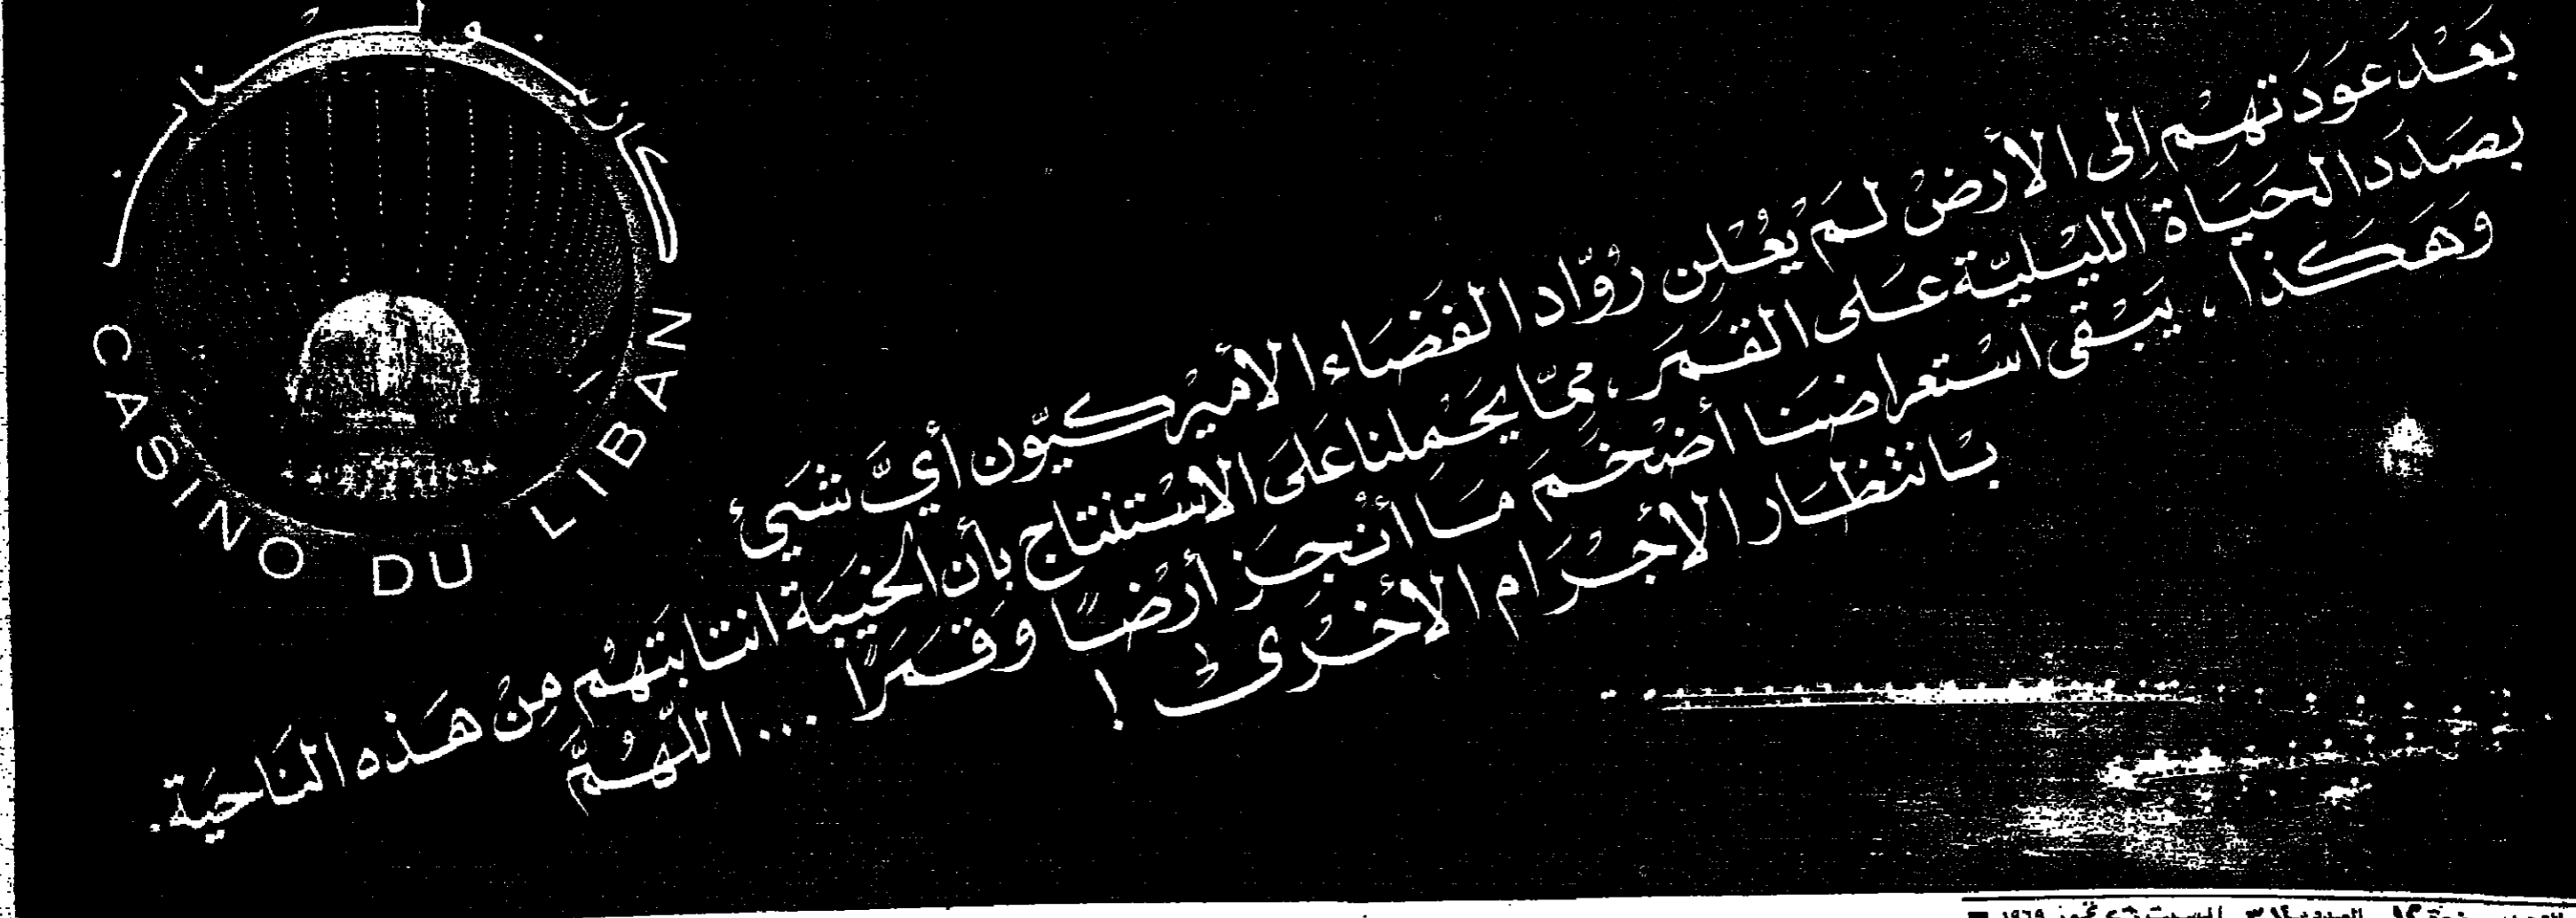 كازينو لبنان
CASINO DU LIBAN
بَعْد عَودَتهِم إلى الأرضْ لَم يُعْلِن رُوّاد الفضَاء الأميركيّون أيَّ شَيئ
بصَدَد الحَيَاة الليْليّة عَلى القَمَر، ممّا يَحْمِلنا عَلى الاسْتنتاج بأن الخَيبَة انتابَتهُم مِنْ هَذه النَاحيَة.
وَهَكذا، يَبْقى اسْتعراضنَا أضْخَم مَا أنْجَز أرْضًا وَقَمَرًا ... اللّهُمَّ
بانتظَار الأجْرَام الأخْرى !
السبت ٢٦ تموز ١٩٦٩